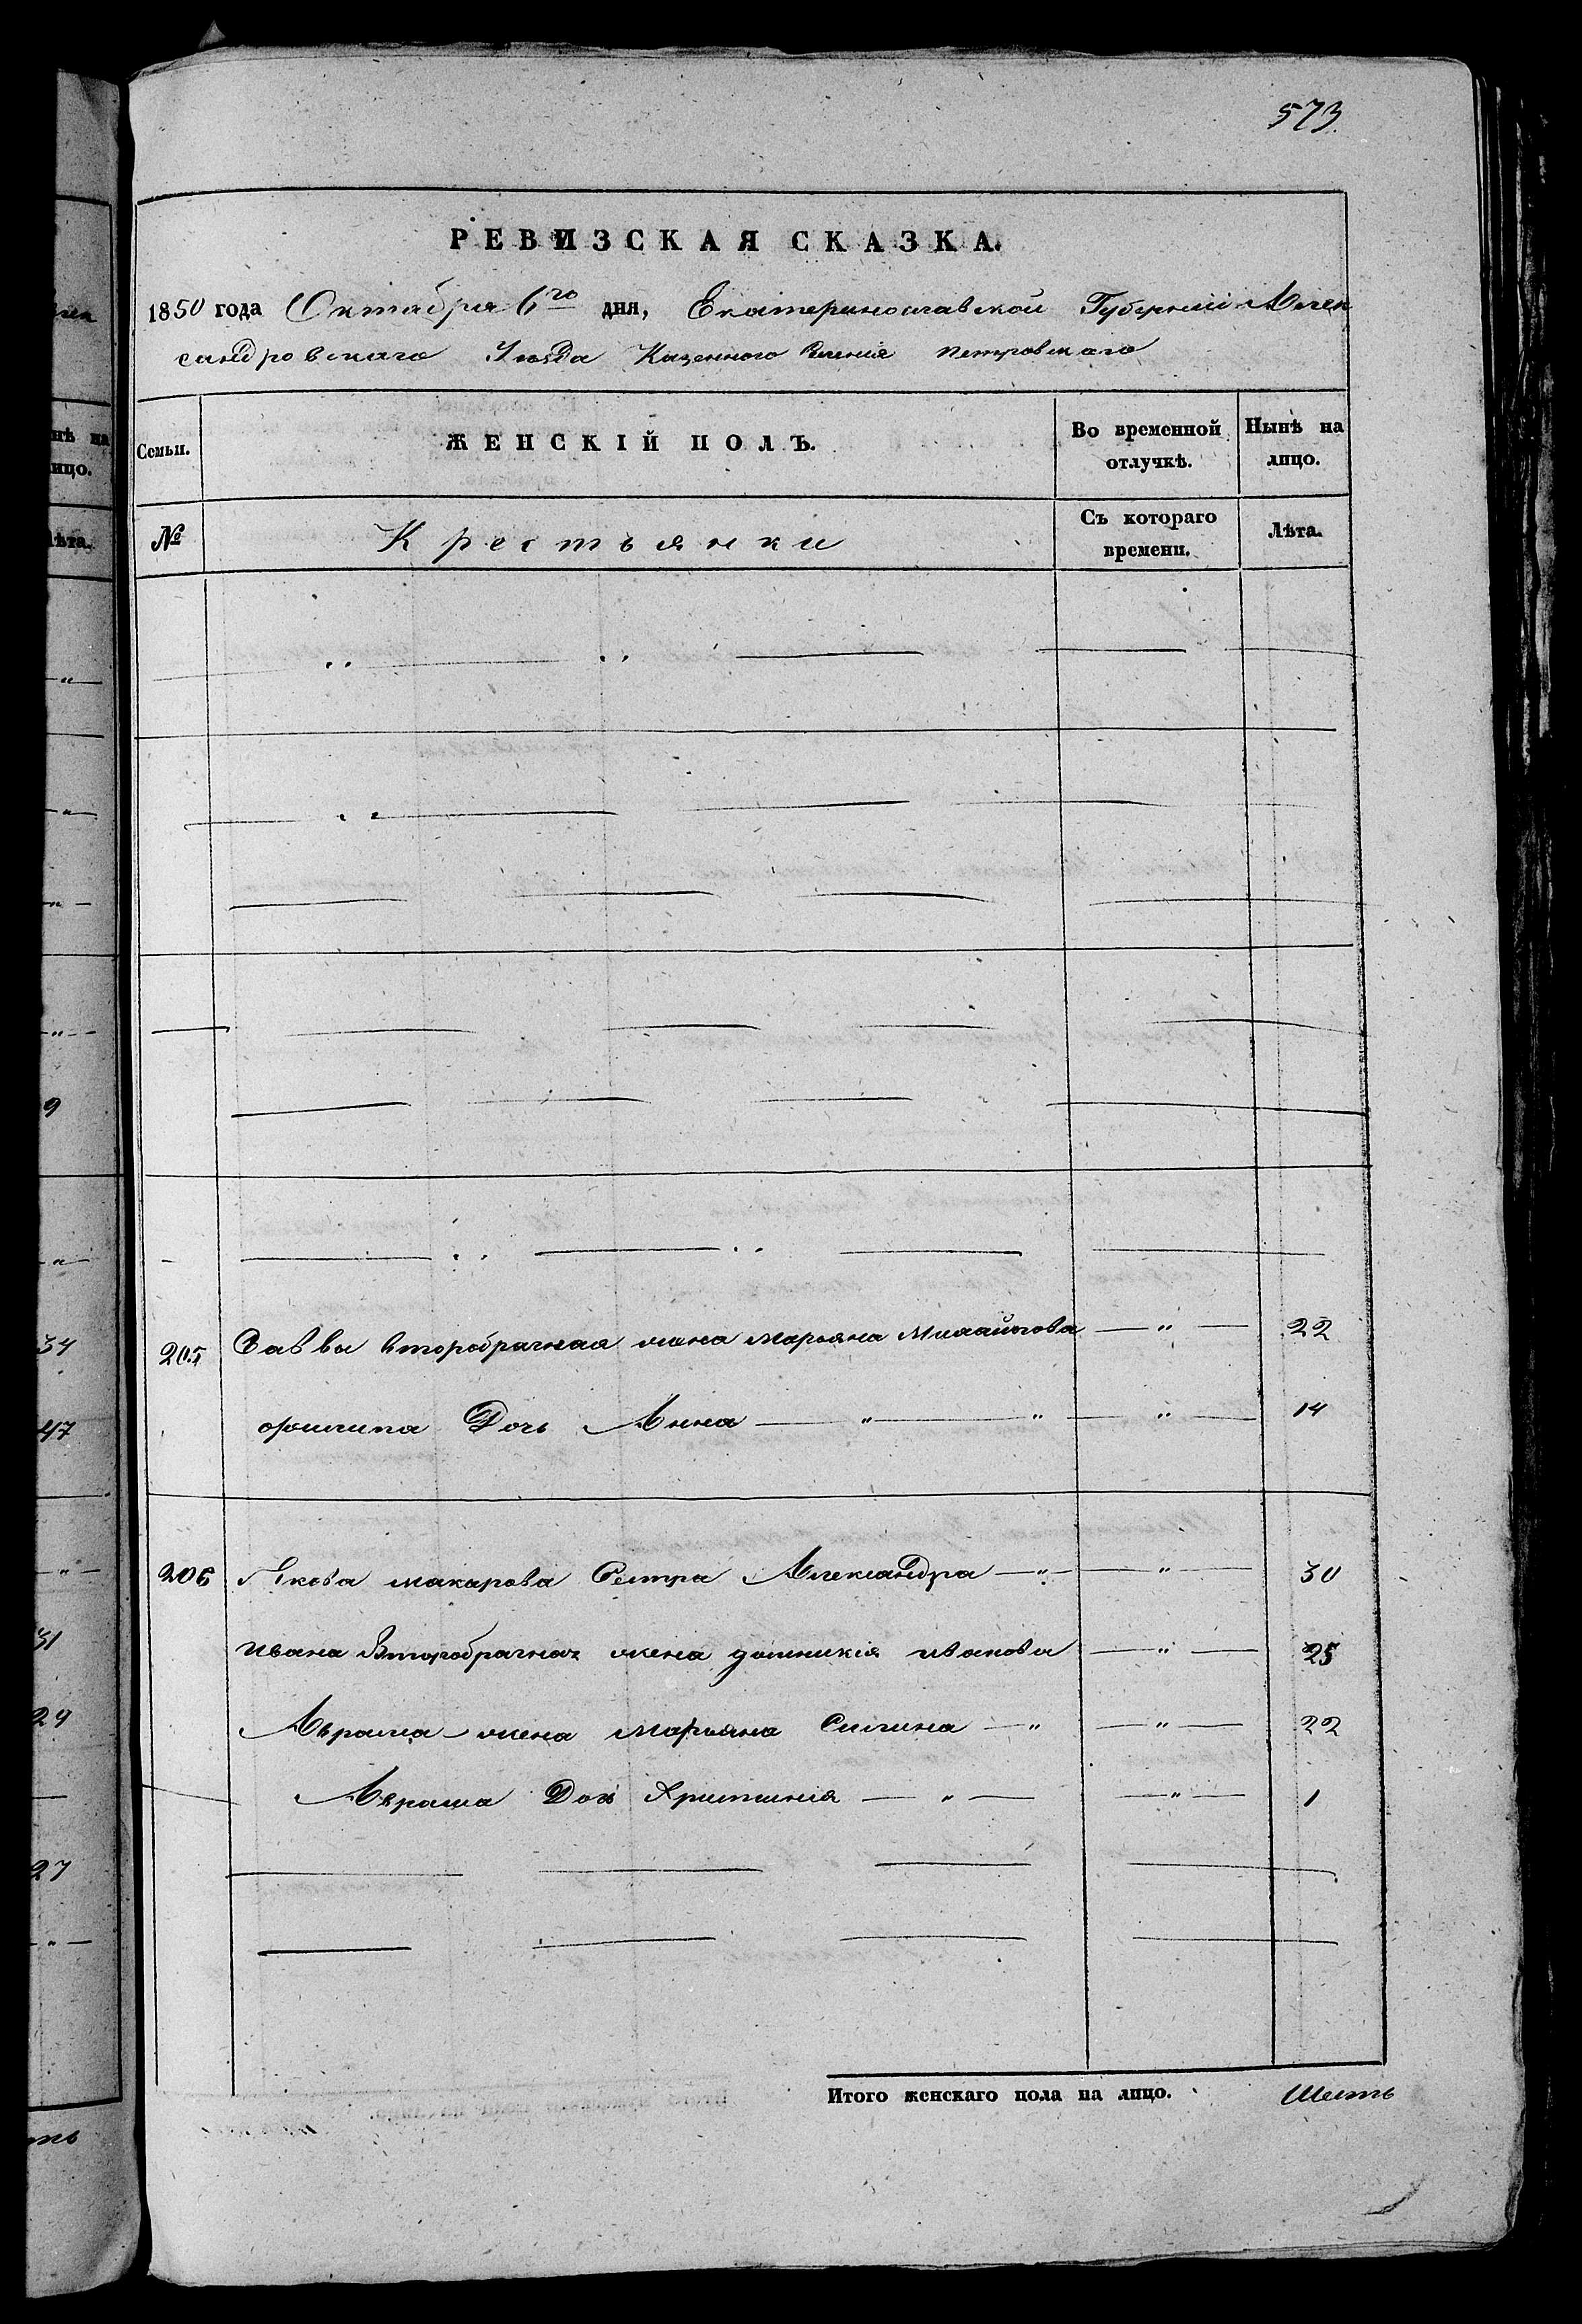 573.
РЕВИЗСКАЯ СКАЗКА.
1850 года Октября 6го дня, Екатеринославской Губерніи Алек
сандровскаго Уезда Казенного Селенія Петровскаго
Семьи. ЖЕНСКІЙ ПОЛЪ. Во временной отлучкѣ. Нынѣ на лицо.
№ Крестьянки Съ котораго времени. Лѣта.
205 Саввы второбрачная жена Марьяна Михайлова — " — 22
Дочь Анна — " — " — " — 14
206 Якова макарова Сестра Александра — " — " — 30
Ивана Второбрачная жена домникія иванова — " — 25
Аврама жена Марьяна Силина — " — " — 22
Аврама Дочь Христинія — " — " — 1
Итого женскаго пола на лицо. Шесть
нѣ на
ицо.
ѣта.
9
34
47
31
29
27